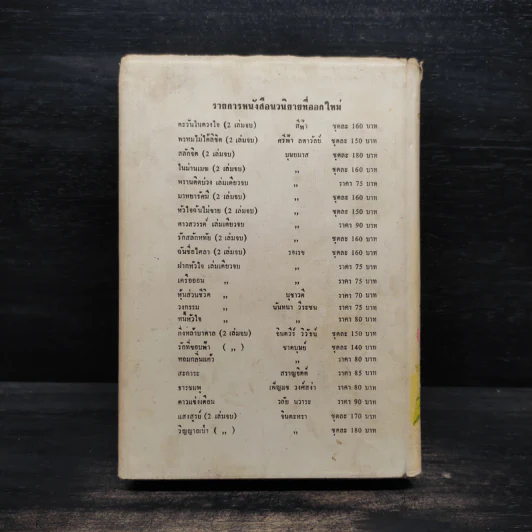 รายการหนังสือนวนิยายที่ออกใหม่
ตะวันในดวงใจ (2 เล่มจบ) สีฟ้า ชุดละ 160 บาท
พรหมไม่ได้ลิขิต (2 เล่มจบ) ศรีฟ้า ลดาวัลย์ ชุดละ 150 บาท
สลักจิต (2 เล่มจบ) บุษยมาส ชุดละ 180 บาท
ในม่านเมฆ (2 เล่มจบ) ,, ชุดละ 160 บาท
พรานดิตบ่วง เล่มเดียวจบ ,, ราคา 75 บาท
มาทยารัศมี (2 เล่มจบ) ,, ชุดละ 160 บาท
หัวใจฉันไม่ขาย (2 เล่มจบ) ,, ชุดละ 150 บาท
ดาวสวรรค์ เล่มเดียวจบ ,, ราคา 90 บาท
รักสลักหทัย (2 เล่มจบ) ,, ชุดละ 160 บาท
ฉันชื่อไศลา (2 เล่มจบ) รจเรข ชุดละ 160 บาท
ฝากหัวใจ เล่มเดียวจบ ,, ราคา 75 บาท
เครือออน ,, ,, ราคา 75 บาท
หุ้นส่วนชีวิต ,, บุชาวดี ราคา 70 บาท
วงกรรม ,, นันทนา วีระชน ราคา 75 บาท
หัวใจ ,, ,, ราคา 80 บาท
กิ่งหล้าบาดาล (2 เล่มจบ) จินตวีร์ วิวัธน์ ชุดละ 150 บาท
รักที่ขอบฟ้า ( ,, ) ชาตบุษย์ ชุดละ 140 บาท
หอมกลิ่นแก้ว ,, ราคา 80 บาท
สะการะ สราญจิตต์ ราคา 85 บาท
ธารชมพู เพ็ญแข วงศ์สง่า ราคา 80 บาท
ดาวแข่งเดือน วลัย นวาระ ราคา 90 บาท
แสงสูรย์ (2 เล่มจบ) จินตะหรา ชุดละ 170 บาท
วิญญาณเก่า ( ,, ) ,, ชุดละ 180 บาท